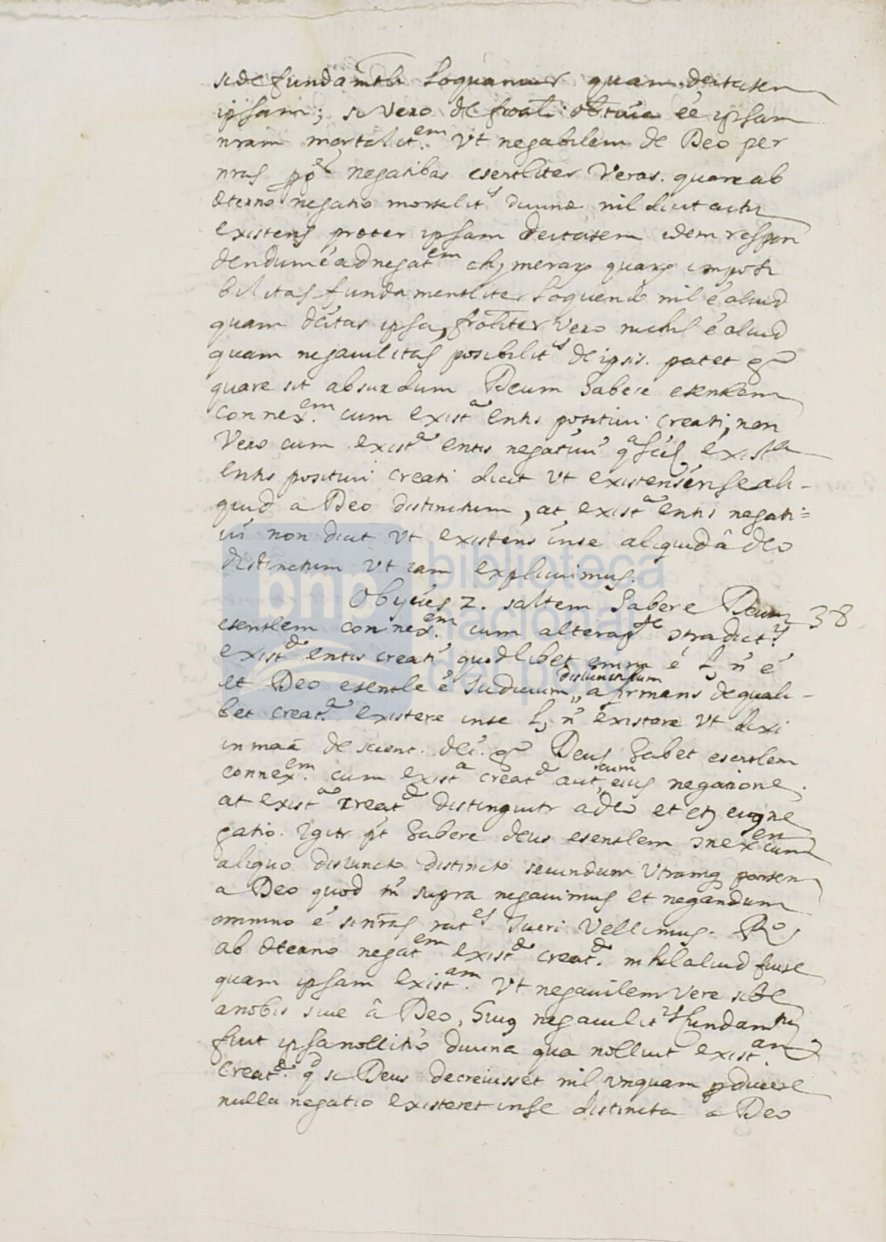 si de fundamtli loquamur quam deitatem
ipsam; si vero de froali obtiva ee ipsam
nram mortalitem. Ut negabilem de Deo per
nras ppes negatibas esentliter veras. quare ab
æterno negatio mortalits divinæ nil dicit actu
existens præter ipsam deitatem idem respon
dendum é ad negatem chymeræ quare imposi
bilitas fundamentliter loquendo nil é aliud
quam deitas ipsa, froaliter vero nichil é aliud
quam negavilitas posibilits de ipsis. patet
quare sit absurdum Deum habere esentlem
connexem. cum exista entis positivi creati, non
vero cum exista entis negativi existta
entis positivi creati dicit ut existens inse ali-
quid a Deo distinctum, at exista entis negati=
vi non dicit ut existens inse aliquid â deo
distinctum ut iam explicuimus.
Obijcies 2. saltem habere Deum 38
esentlem connexem. cum altera parte
existæ entis creati quodlibet enim é l, ñ é
et Deo esentle é Judicium disiunctivum afirmans de quali-
bet creatra existere inse l, ñ existere ut dixi
in maa de scient. dei. Deus habet esentlem
connexem. cum exista creatæ aut cum eius negatione,
at exista creatæ distinguitr a deo et etj eius ne
gatio. Igitr pt habere deus esentlem conexem cum
aliquo disiuncto distincto secundum utramq partem
a Deo quod tñ supra negavimus et negandum
omnino é si nras rates tueri vellimus. Ro
ab æterno negatem existæ creatæ. nihil aliud fuise
quam ipsam existam. Ut negavilem vere
a nobis sive â Deo, huiq negavilits fundamtm
fuit ipsa nollitio divina qua noluit existam
creatæ. qd si Deus decreuisset nil unquam pducere
nulla negatio existeret inse distincta a Deo